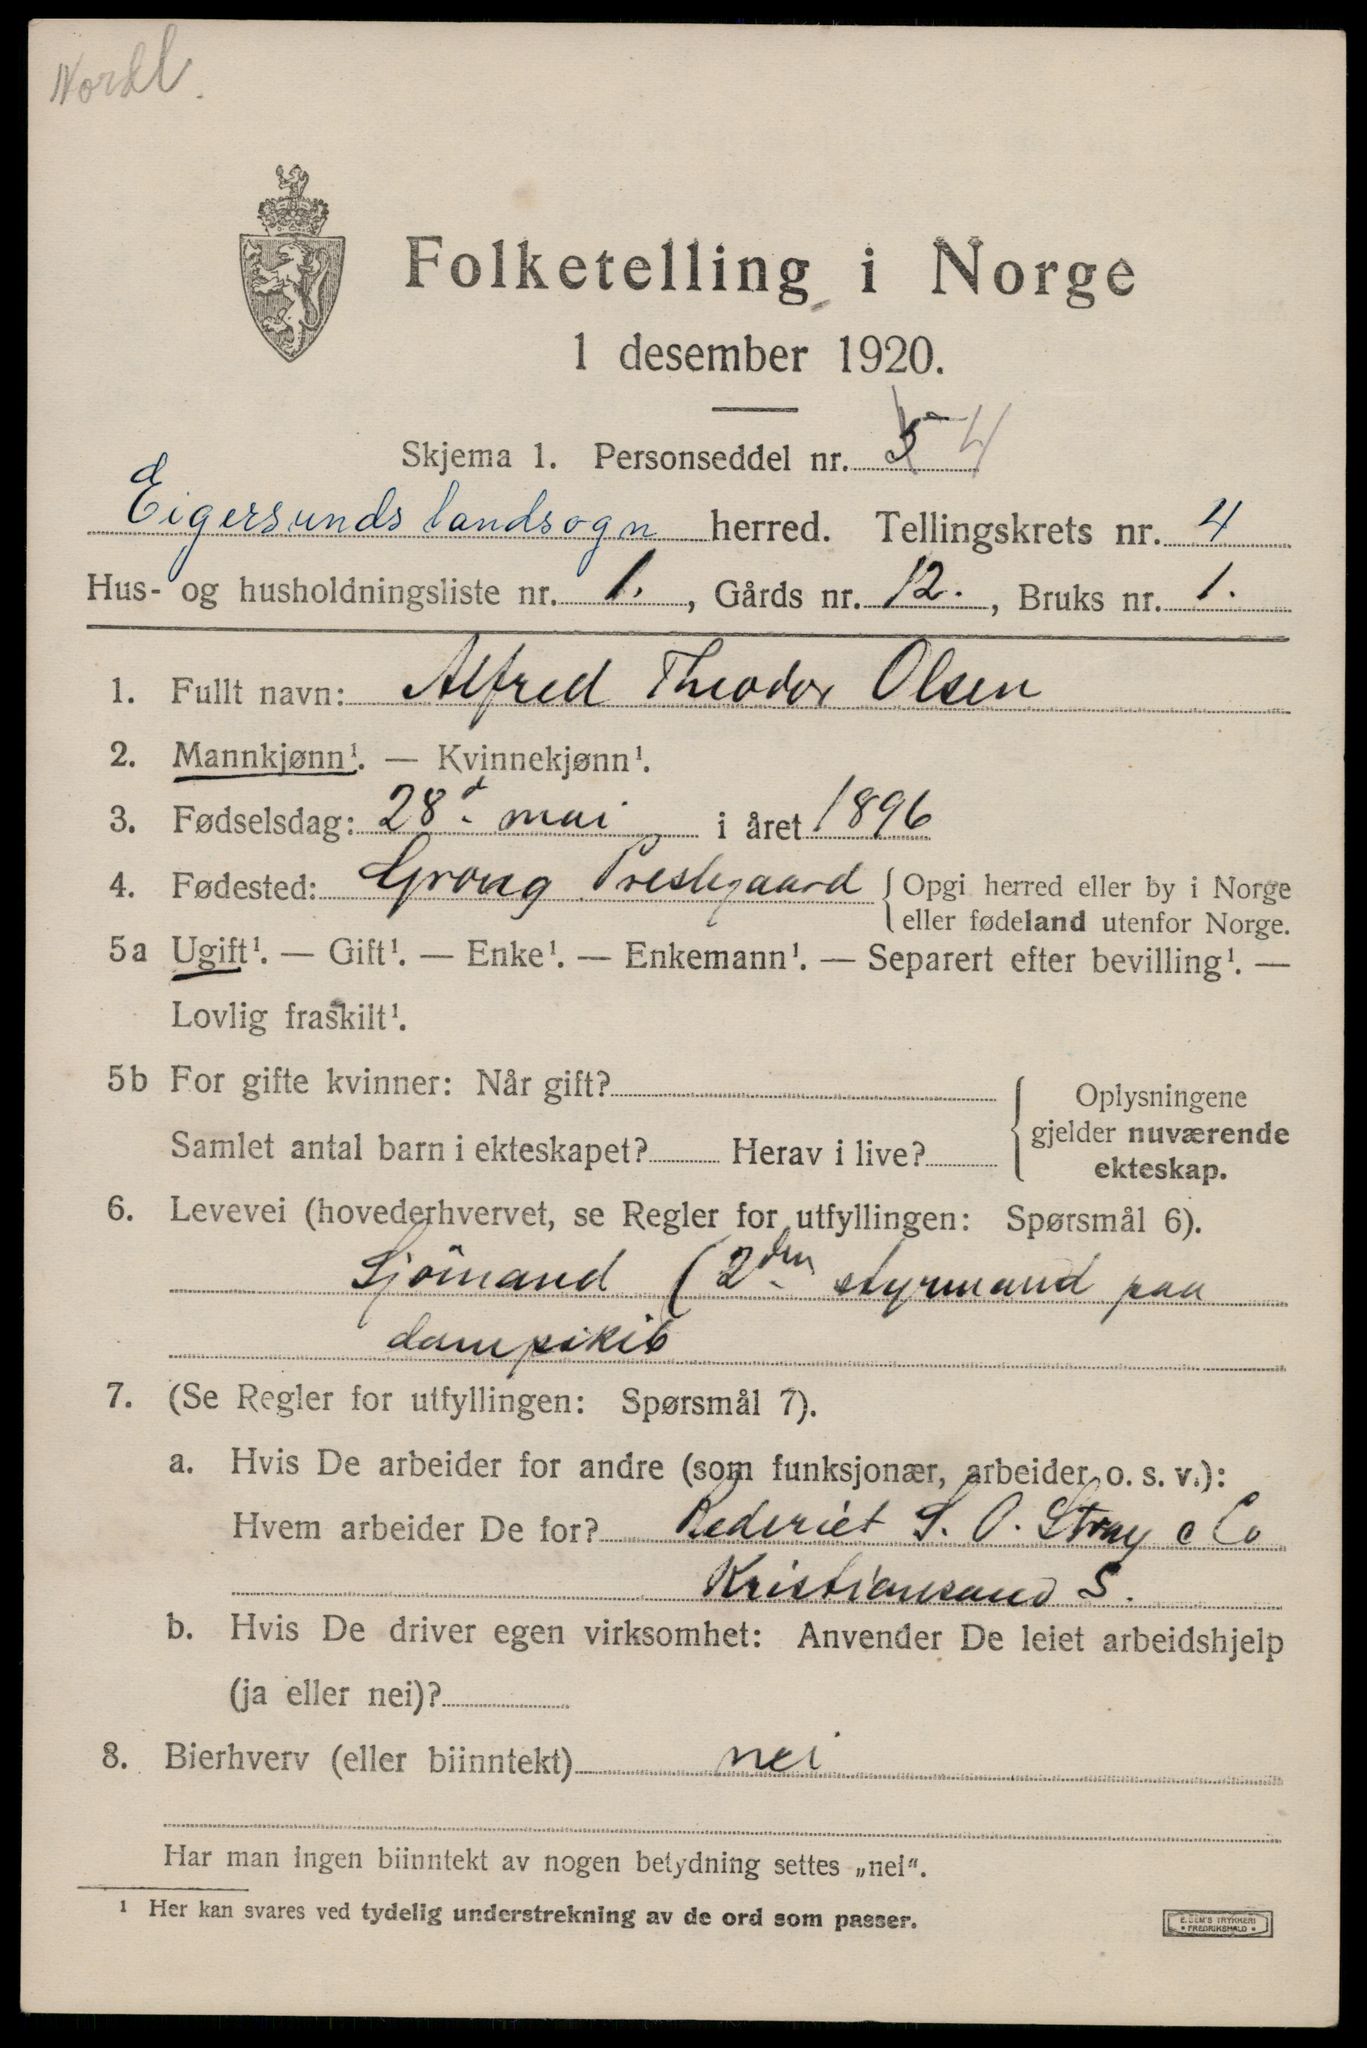 Nordl.
Folketelling i Norge
1 desember 1920.
Skjema 1. Personseddel nr. 5 4
Eigersunds landsogn herred. Tellingskrets nr. 4
Hus- og husholdningsliste nr. 1., Gårds nr. 12., Bruks nr. 1.
1. Fullt navn: Alfred Theodor Olsen
2. Mannkjønn¹. — Kvinnekjønn¹.
3. Fødselsdag: 28d. mai i året 1896
4. Fødested: Grong Prestegaard { Opgi herred eller by i Norge
eller fødeland utenfor Norge.
5a Ugift¹. — Gift¹. — Enke¹. — Enkemann¹. — Separert efter bevilling¹. —
Lovlig fraskilt¹.
5b For gifte kvinner: Når gift?
Samlet antal barn i ekteskapet? Herav i live?
Oplysningene
gjelder nuværende
ekteskap.
6. Levevei (hovederhvervet, se Regler for utfyllingen: Spørsmål 6).
Sjömand (2den styrmand paa
dampskib
7. (Se Regler for utfyllingen: Spørsmål 7).
a. Hvis De arbeider for andre (som funksjonær, arbeider o. s. v.):
Hvem arbeider De for? Rederiet S. O. Stray & Co
Kristiansand S.
b. Hvis De driver egen virksomhet: Anvender De leiet arbeidshjelp
(ja eller nei)?
8. Bierhverv (eller biinntekt) nei
Har man ingen biinntekt av nogen betydning settes „nei".
¹ Her kan svares ved tydelig understrekning av de ord som passer.
E. SEM'S TRYKKERI
• FREDRIKSHALD •